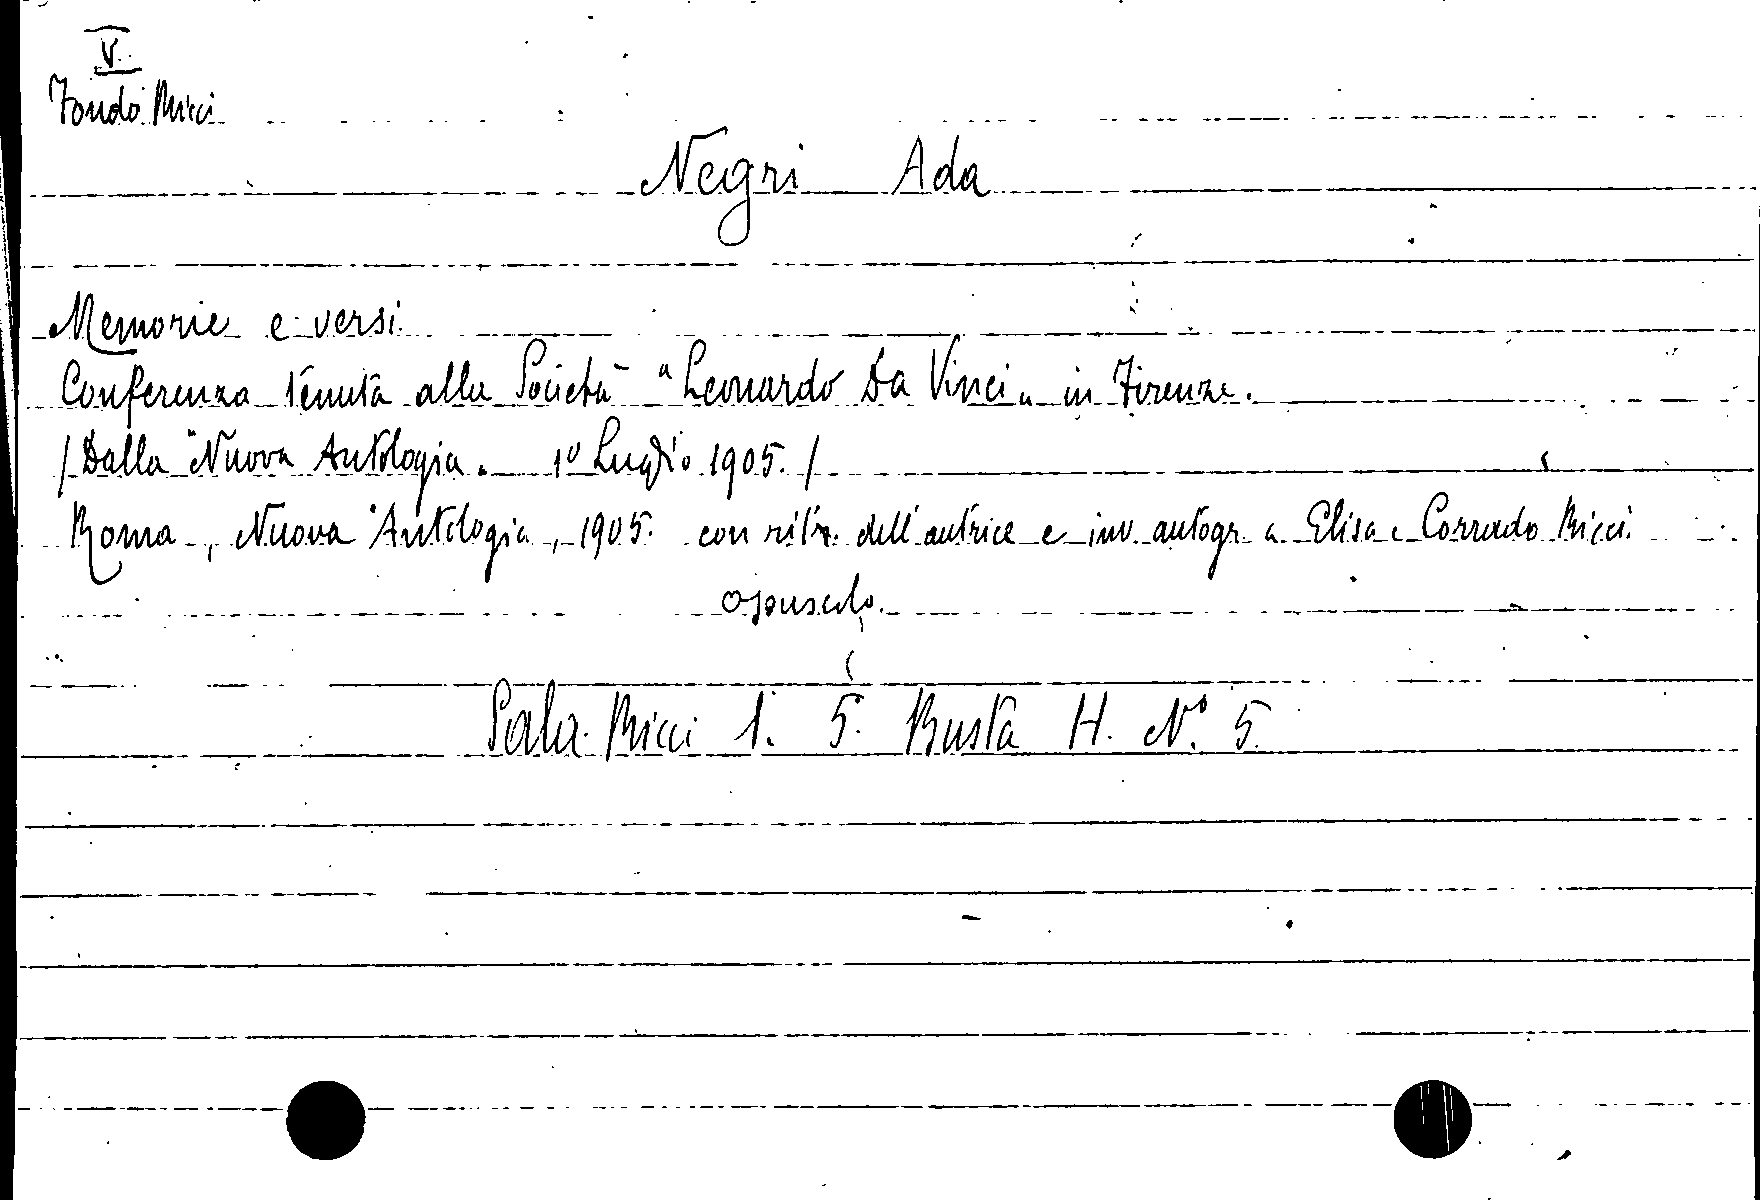 V
Fondo Ricci
Negri Ada
Memorie e versi.
Conferenza tenuta alla Società "Leonardo Da Vinci" in Firenze.
/Dalla "Nuova Antologia. 1º Luglio 1905./
Roma, Nuova Antologia, 1905. con ritr. dell'autrice e inv. autogr. a Elisa e Corrado Ricci.
opuscolo.
Sala Ricci 1. 5. Busta H. Nº 5